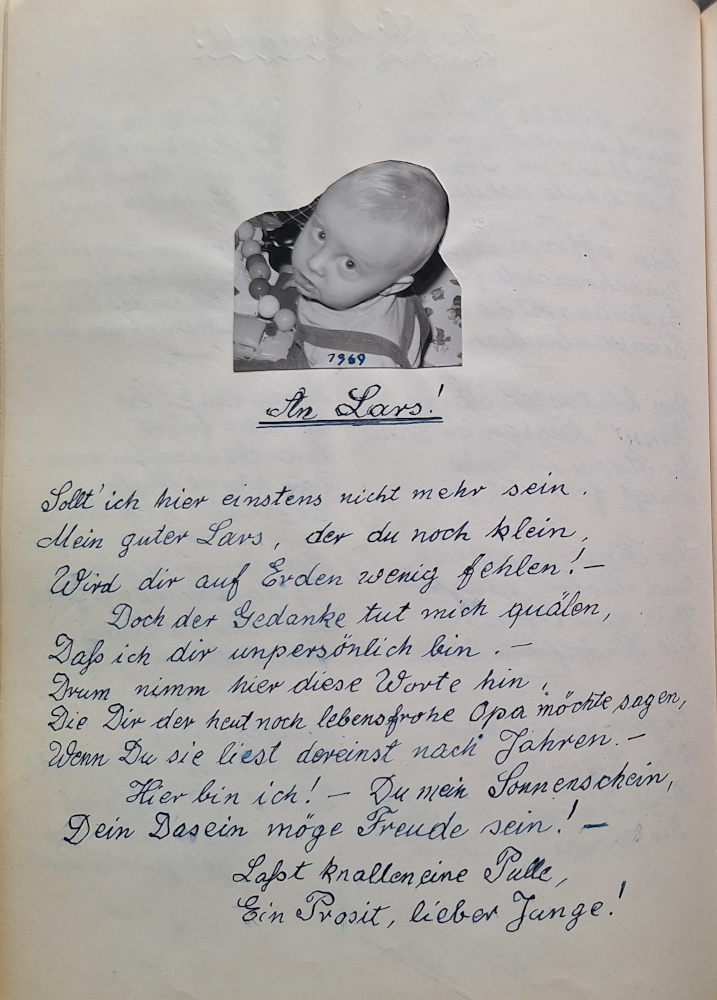 1969
An Lars!
Sollt' ich hier einstens nicht mehr sein.
Mein guter Lars, der du noch klein,
Wird dir auf Erden wenig fehlen! –
Doch der Gedanke tut mich quälen,
Daß ich dir unpersönlich bin. –
Drum nimm hier diese Worte hin,
Die Dir der heut noch lebensfrohe Opa möchte sagen,
Wenn Du sie liest dereinst nach Jahren. –
Hier bin ich! – Du mein Sonnenschein,
Dein Dasein möge Freude sein! –
Laßt knallen eine Pulle,
Ein Prosit, lieber Junge!